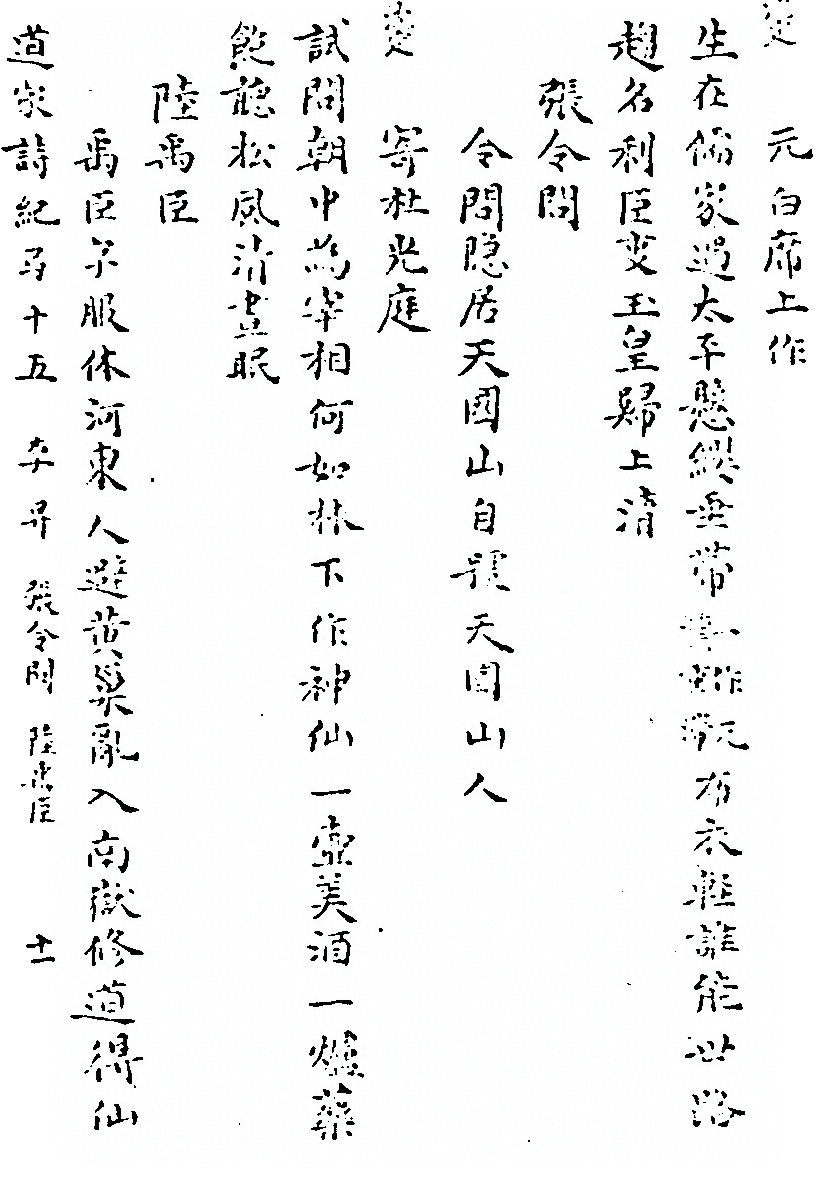 元白席上作
生在儒家遇太平懸纓垂帶布衣輕誰能世路
趨名利臣叓玉皇歸上清
張令問
令問隱居天國山自號天國山人
寄杜光庭
試問朝中為宰相何如林下作神仙一壺美酒一爐藥
飽聽松風清晝眠
陸禹臣
禹臣字服休河東人避黃巢亂入南嶽修道得仙
道家詩紀弓十五 李昇 張令問 陸禹臣 十一